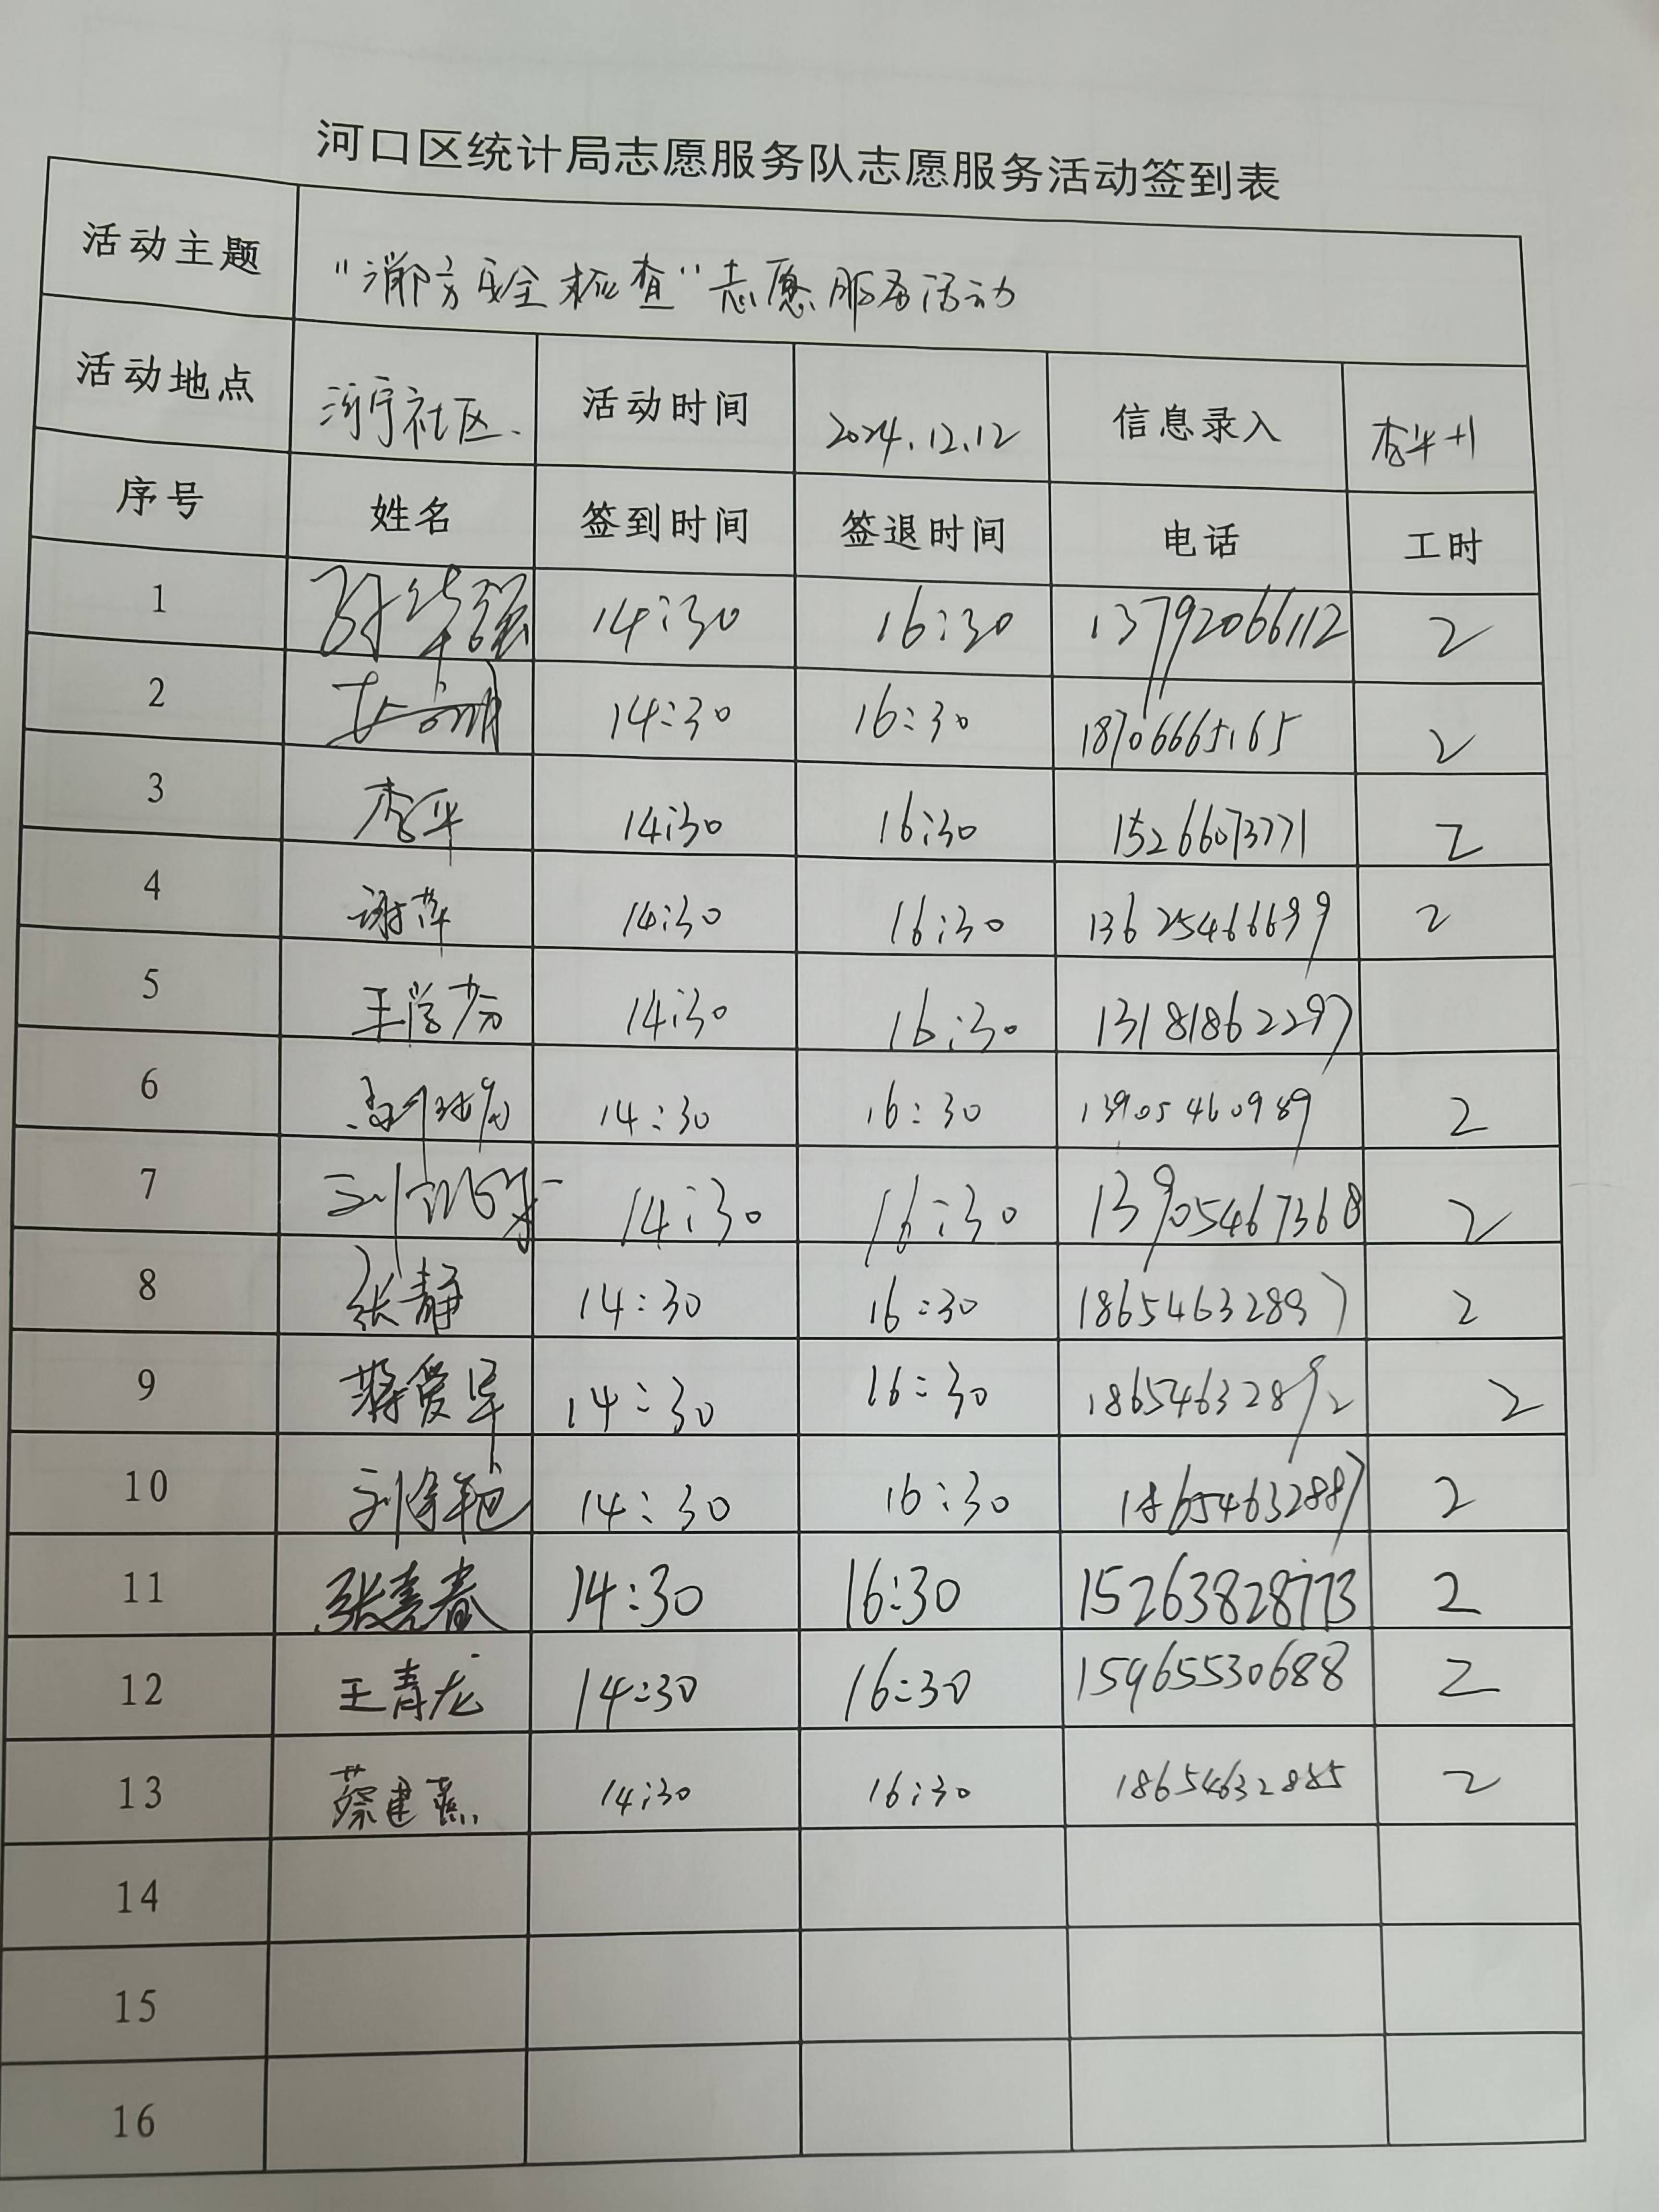 河口区统计局志愿服务队志愿服务活动签到表
活动主题 "消防安全检查"志愿服务活动
活动地点 河宁社区. 活动时间 2024.12.12 信息录入 李华+1
序号 姓名 签到时间 签退时间 电话 工时
1 14:30 16:30 13792066112 2
2 14:30 16:30 18706665165 2
3 李华 14:30 16:30 15266073771 2
4 谢萍 14:30 16:30 13625466699 2
5 王学芬 14:30 16:30 13181862297
6 14:30 16:30 13905460989 2
7 14:30 16:30 13905467368 2
8 张静 14:30 16:30 18654632897 2
9 蒋爱军 14:30 16:30 18654632892 2
10 14:30 16:30 18654632887 2
11 张春 14:30 16:30 15263828773 2
12 王青龙 14:30 16:30 15965530688 2
13 蔡建燕 14:30 16:30 18654632885 2
14
15
16